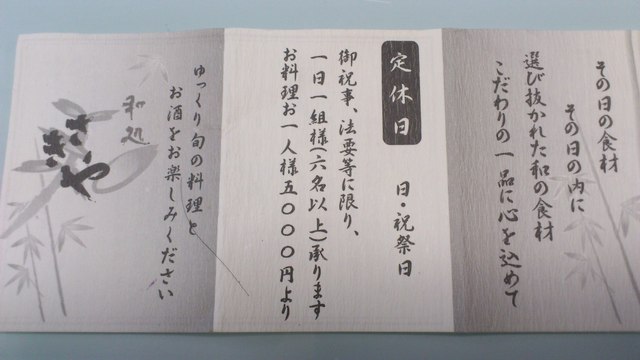 その日の食材
その日の内に
選び抜かれた和の食材
こだわりの一品に心を込めて
定休日　日・祝祭日
御祝事、法要等に限り、
一日一組様(六名以上)承ります
お料理お一人様五〇〇〇円より
ゆっくり旬の料理と
お酒をお楽しみください
和処
さきや